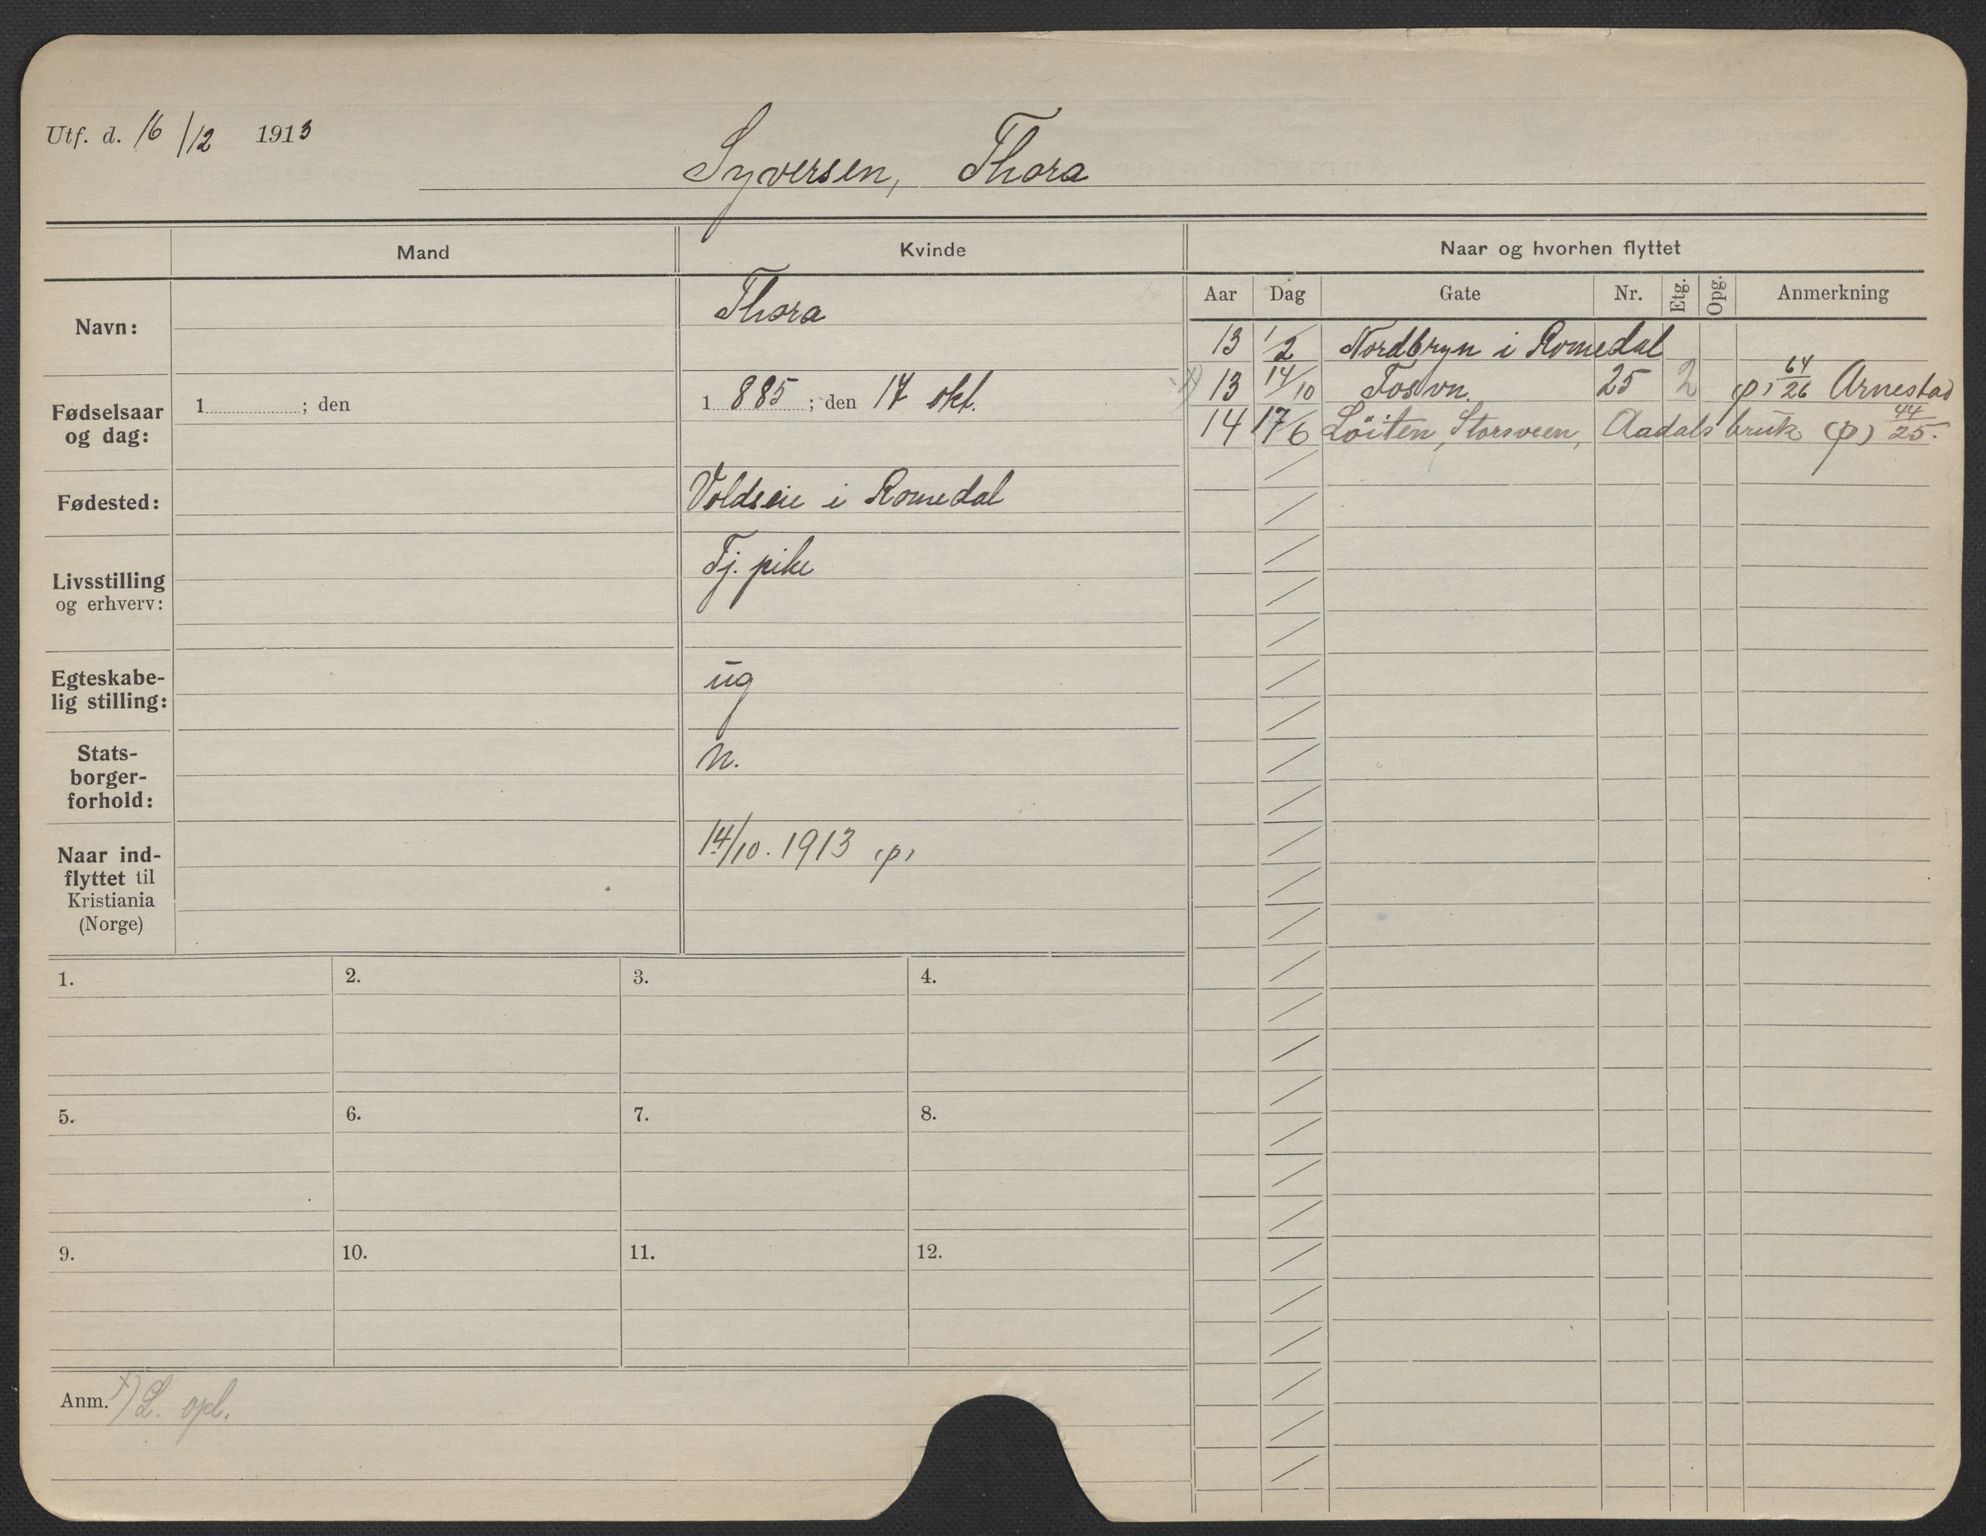 Utf. d. 16/12 1913
Syversen, Thora
Mand
Kvinde
Naar og hvorhen flyttet
Aar Dag Gate Nr. Etg. Opg. Anmerkning
13 1/2 Nordbryn i Romedal
x) 13 14/10 Fosvn. 25 2 (p) 64/26 Arnestad
14 17/6 Löiten, Storsveen, Aadals bruk (p) 44/25.
Navn:
Thora
Fødselsaar
og dag:
1 ; den
1 885 ; den 17 okt.
Fødested:
Voldseie i Romedal
Livsstilling
og erhverv:
Tj. pike
Egteskabe-
lig stilling:
ug
Stats-
borger-
forhold:
n.
Naar ind-
flyttet til
Kristiania
(Norge)
14/10. 1913 (p)
1. 2. 3. 4.
5. 6. 7. 8.
9. 10. 11. 12.
Anm. x) L. opl.